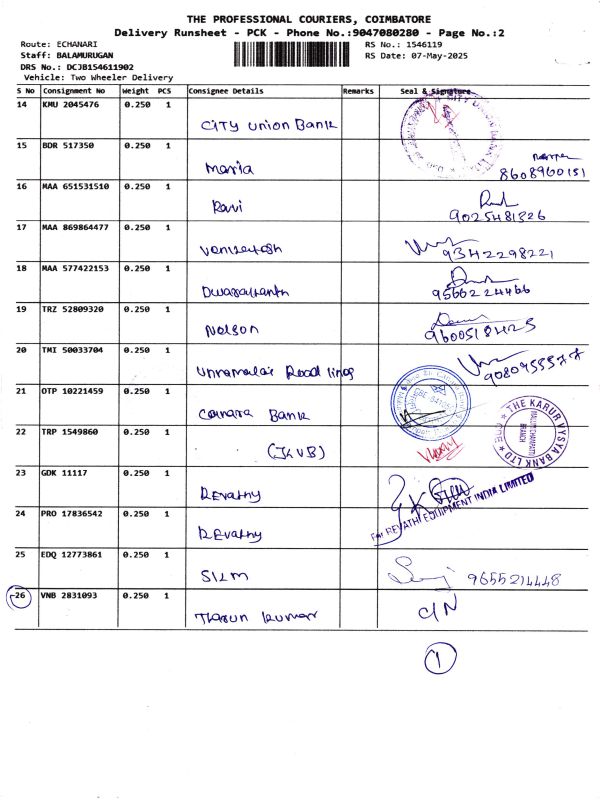 THE PROFESSIONAL COURIERS, COIMBATORE
Delivery Runsheet - PCK - Phone No.:9047080280 - Page No.:2
Route: ECHANARI RS No.: 1546119
Staff: BALAMURUGAN RS Date: 07-May-2025
DRS No.: DCJB154611902
Vehicle: Two Wheeler Delivery
S No Consignment No Weight PCS Consignee Details Remarks Seal & Signature
14 KMU 2045476 0.250 1
City Union Bank
15 BDR 517350 0.250 1
Maria 8608960151
16 MAA 651531510 0.250 1
Ravi 9025481326
17 MAA 869864477 0.250 1
Venkatesh 9342298221
18 MAA 577422153 0.250 1
9566224466
19 TRZ 52809320 0.250 1
Nelson 9600518425
20 TMI 50033704 0.250 1
Unnamalai Road lines
21 OTP 10221459 0.250 1
Canara Bank
22 TRP 1549860 0.250 1
(KVB)
THE KARUR VYSYA BANK LTD
BRANCH
23 GDK 11117 0.250 1
Revathy
For REVATHI EQUIPMENT INDIA LIMITED
24 PRO 17836542 0.250 1
Revathy
25 EDQ 12773861 0.250 1
SLLM 9655214448
26 VNB 2831093 0.250 1
Tharun Kumar C/N
1